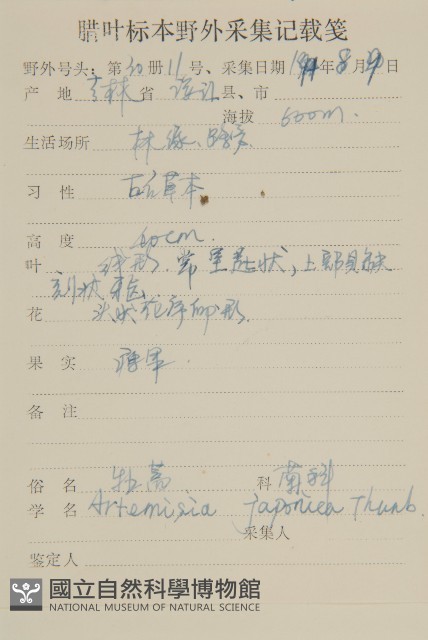 腊叶标本野外采集记载笺
野外号头：第30册11号、采集日期19 年8月 日
产 地 吉林省 县、市
海拔 600m.
生活场所 林缘、路旁
习 性 草本
高 度 60cm.
叶 线形. 常呈匙状，上部具缺
刻状牙齿
花 头状花序卵形.
果 实 瘦果.
备 注
俗 名 牡蒿 科 菊科
学 名 Artemisia japonica Thunb.
采集人
鉴定人
國立自然科學博物館
NATIONAL MUSEUM OF NATURAL SCIENCE